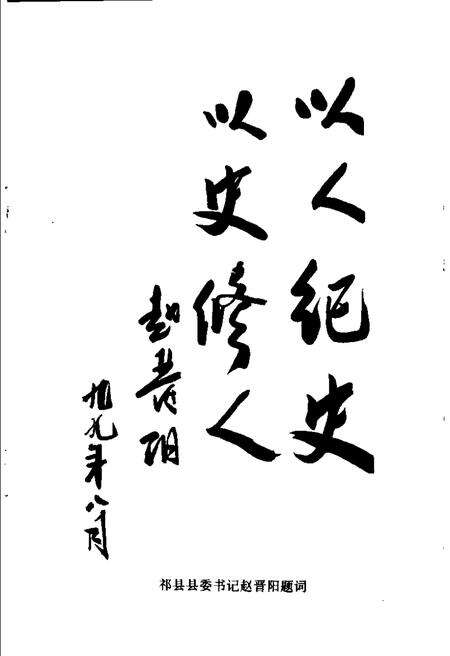 以人纪史
以史修人
赵晋阳
九九年八月
祁县县委书记赵晋阳题词